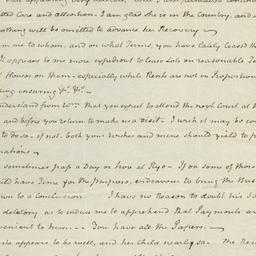 ted Care and attention. I am glad she is in the Country, and
othing will be omitted to advance her Recovery
m me to whom, and on what Terms, you have lately leased th
It appears to me more expedient to lease Lots on reasonable T
Houses on them - especially while Rents are not in Proportion
ing ensuring &c. &c.
understand from Wm. that you expect to attend the next Court at
and before you return to make us a visit. I wish it may be co
to do so. if not, both your wishes and mine should yield to p
nations.
sometimes pass a Day or two at Rye. If on some of those
ld have Time for the purpose, endeavour to bring the Bus
on to a Conclusion. I have no Reason to doubt his So
delatory as to induce me to apprehend that Payments ar
venient to him. You have all the Papers.
ia appears to be well, and her Child nearly so. The Rest